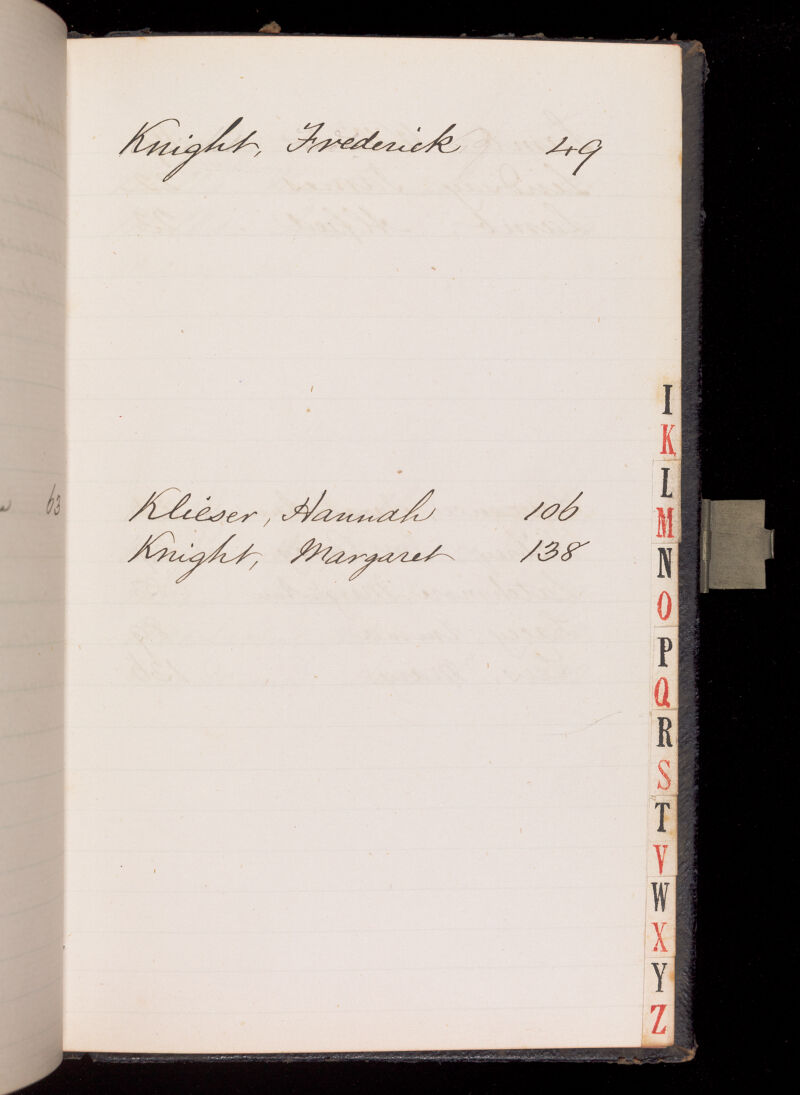 Knight, Frederick 49
63
Klieser, Hannah 106
Knight, Margaret 138
I
K
L
M
N
O
P
Q
R
S
T
V
W
X
Y
Z